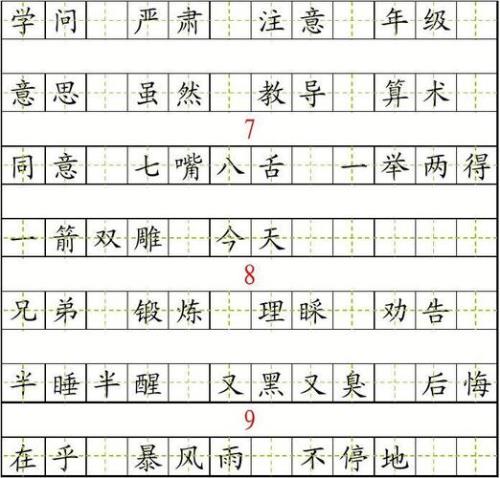 学问 严肃 注意 年级
意思 虽然 教导 算术
7
同意 七嘴八舌 一举两得
一箭双雕 今天
8
兄弟 锻炼 理睬 劝告
半睡半醒 又黑又臭 后悔
9
在乎 暴风雨 不停地